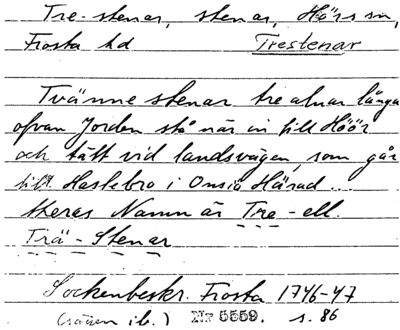 Tre-stenar, stenar, Hörs sn,
Frosta hd Trestenar
Tvänne stenar tre alnar långa
ofvan Jorden stå när in till Höör
och tätt vid landsvägen, som går
till Hastebro i Onsiö Härad...
theras Namn är Tre- ell.
Trä-Stenar
Sockenbeskr. Frosta 1746-47
(sägen ib.) Nr 5559. s. 86